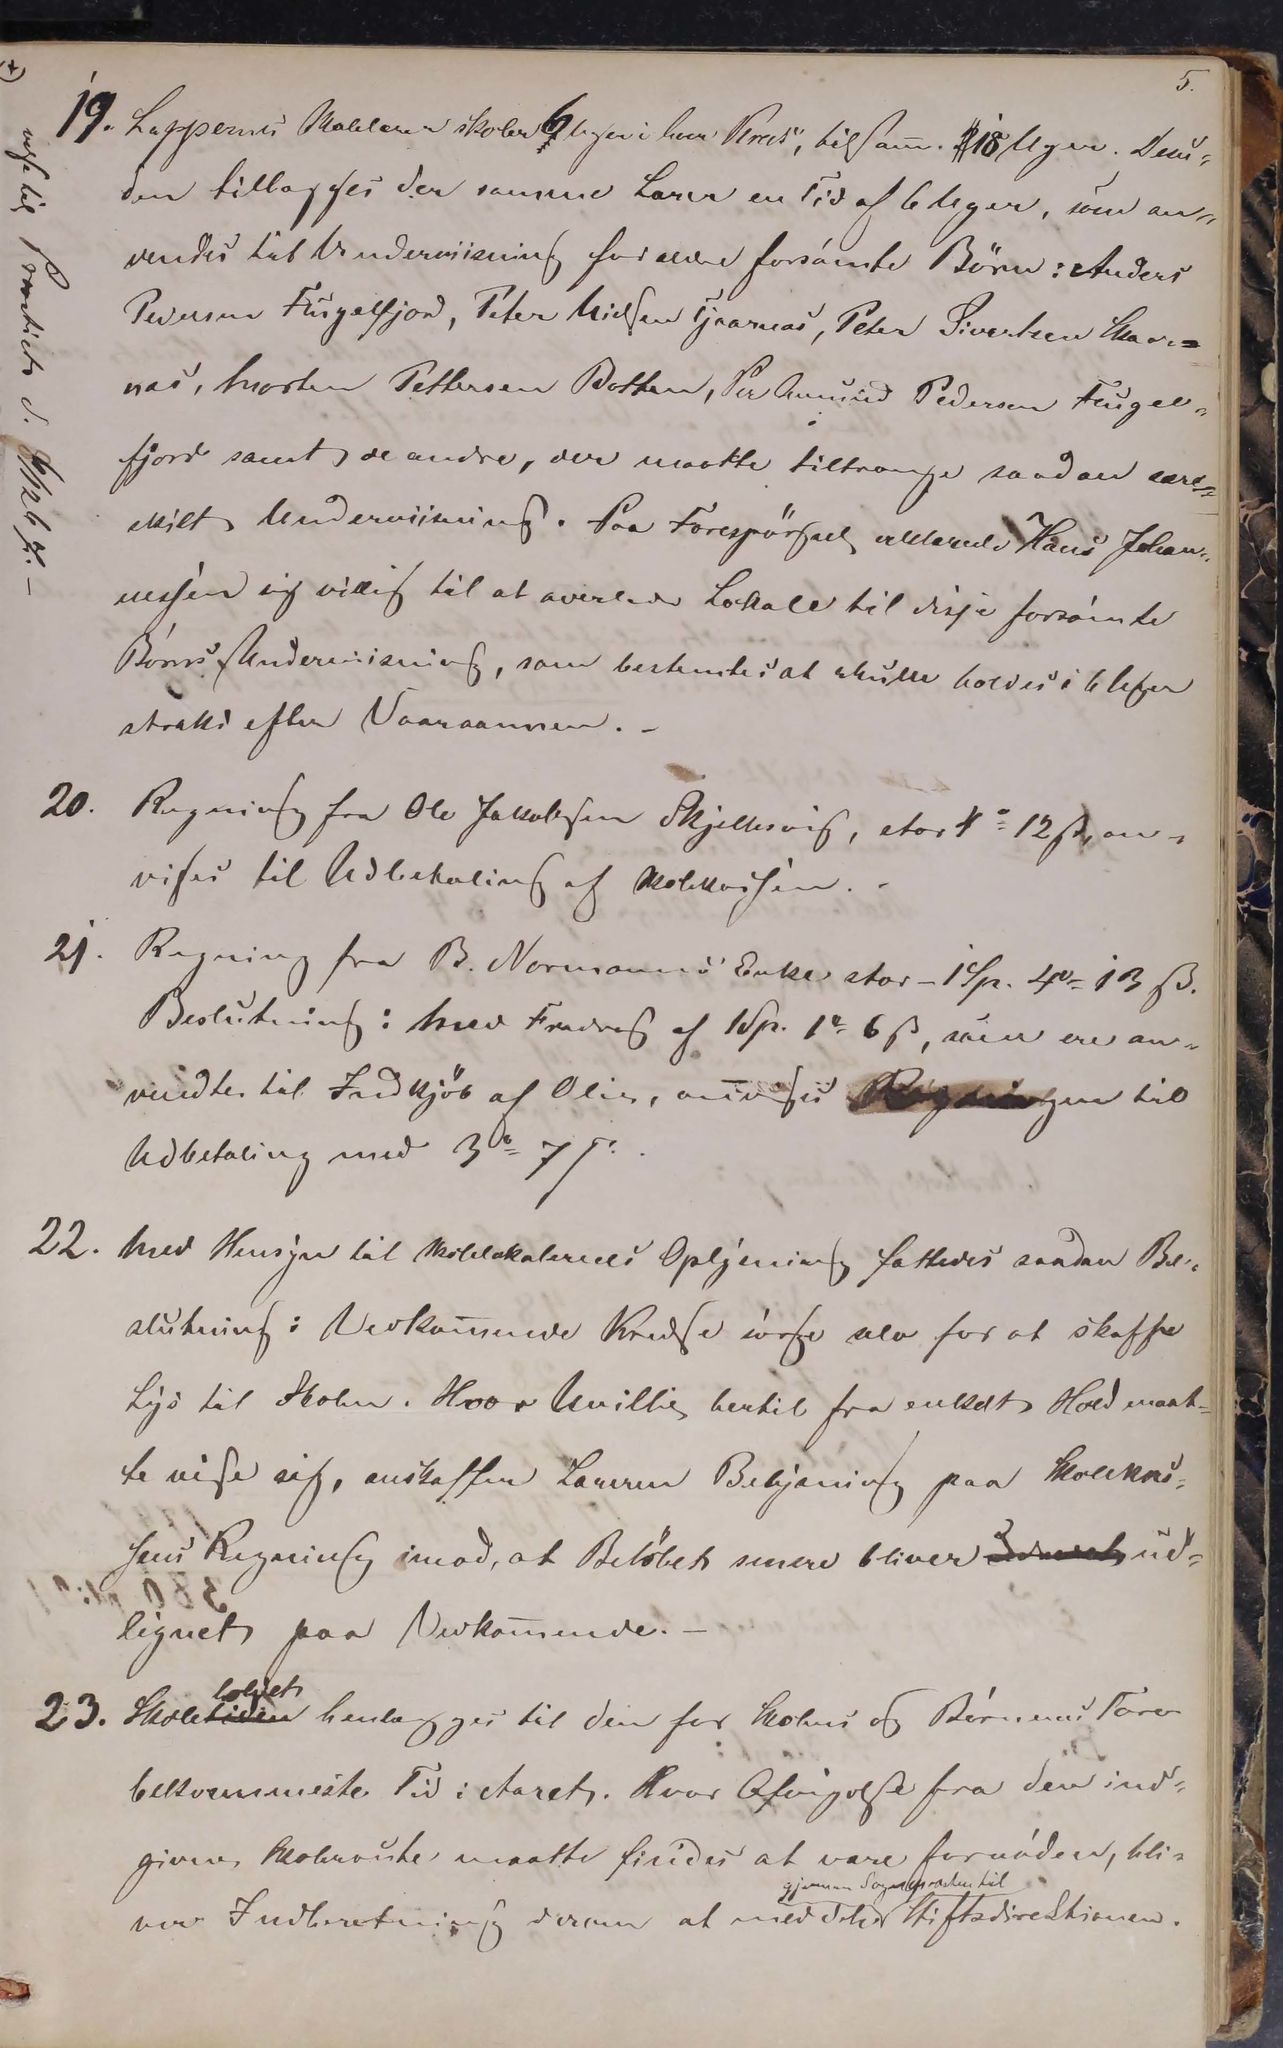 5.
19. Lappernes Skolelærer skoler 6 Uger i hver Kreds, tilsam. 18 Uger. Desu-
den tillægges der samme Lærer en Tid af 6 Uger, som an-
vendes til Underviisning for ældre forsömte Börn: Anders
Pedersen Fuglfjord, Peter Nielsen Tjærnæs, Peter Sivertsen Skar-
næs, Morten Pettersen Botten, Per Amund Pedersen Fugel-
fjord samt de andre, der maatte tiltrænge saadan sær-
skilt Underviisning. Paa Forespörgsel erklærede Hans Johan-
nessen sig villig til at overlade Lokale til disse forsömte
Börns Underviisning, som bestemtes at skulle holdes i 6 Uger
straks efter Vaaraannen. -
20. Regning fra Ole Jakobsen Skjellesvig, stor 4 12 ß, an-
vises til Udbetaling af Skolekassen. -
21. Regning fra B. Normanns Enke stor - 1 Sp. 4 13 ß.
Beslutning: Med Fradrag af 1 Sp. 1 6 ß, som ere an-
vendte til Indkjöb af Olie, anvises Regningen til
Udbetaling med 3 7 ß.
22. Med Hensyn til Skolelokalernes Oplysning fattedes saadan Be-
slutning: Vedkommende Kredse sörge selv for at skaffe
Lys til Skolen. Hvor Uvillie hertil fra enkelt Hold maat-
te vise sig, anskaffer Læreren Belysning paa Skolekas-
sens Regning imod, at Belöbet senere bliver ud-
lignet paa Vedkommende. -
23. Skoleholdet henlægges til den for Skolens og Börnenes Tarv
bekvemmeste Tid i Aaret. Hvor Afvigelse fra den ind-
givne Skoleroute maatte findes at være fornöden, bli-
ver Indberetning derom at meddele gjennem Sognepræsten til Stiftsdirektionen.